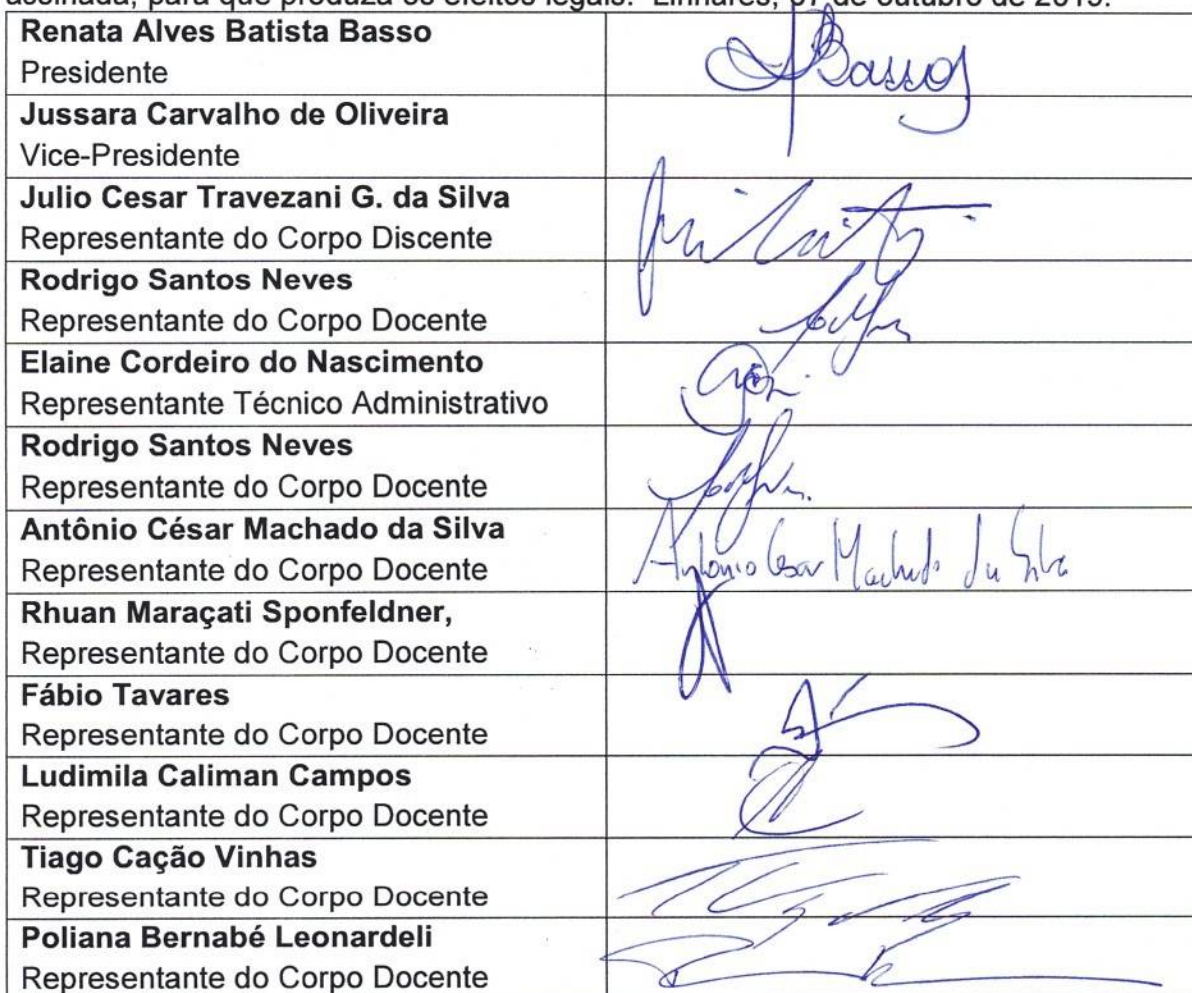 assinada, para que produza os efeitos legais. Linhares, 07 de outubro de 2019.
Renata Alves Batista Basso
Presidente
Basso
Jussara Carvalho de Oliveira
Vice-Presidente
Julio Cesar Travezani G. da Silva
Representante do Corpo Discente
Rodrigo Santos Neves
Representante do Corpo Docente
Elaine Cordeiro do Nascimento
Representante Técnico Administrativo
Rodrigo Santos Neves
Representante do Corpo Docente
Antônio César Machado da Silva
Representante do Corpo Docente
Antonio Cesar Machado da Silva
Rhuan Maraçati Sponfeldner,
Representante do Corpo Docente
Fábio Tavares
Representante do Corpo Docente
Ludimila Caliman Campos
Representante do Corpo Docente
Tiago Cação Vinhas
Representante do Corpo Docente
Poliana Bernabé Leonardeli
Representante do Corpo Docente